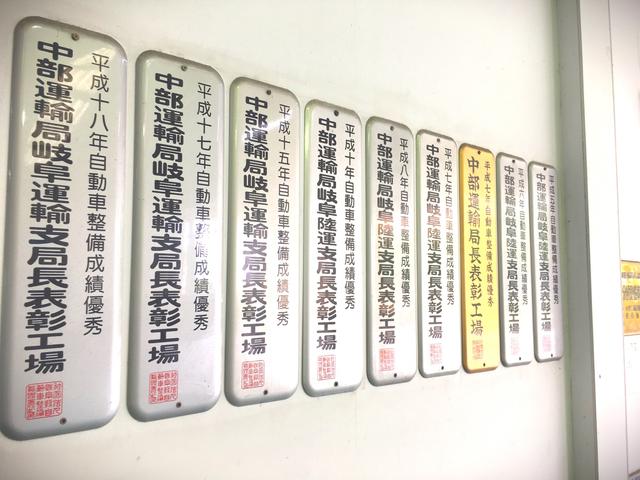 平成十八年自動車整備成績優秀
中部運輸局岐阜運輸支局長表彰工場
平成十七年自動車整備成績優秀
中部運輸局岐阜運輸支局長表彰工場
平成十五年自動車整備成績優秀
中部運輸局岐阜運輸支局長表彰工場
平成十年自動車整備成績優秀
中部運輸局岐阜陸運支局長表彰工場
平成八年自動車整備成績優秀
中部運輸局岐阜陸運支局長表彰工場
平成七年自動車整備成績優秀
中部運輸局岐阜陸運支局長表彰工場
平成七年自動車整備成績優秀
中部運輸局長表彰工場
平成六年自動車整備成績優秀
中部運輸局岐阜陸運支局長表彰工場
平成五年自動車整備成績優秀
中部運輸局岐阜陸運支局長表彰工場